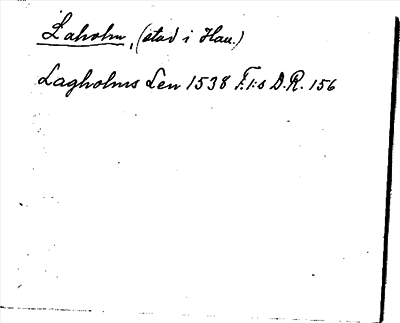 Laholm, (stad i Hall.)
Lagholms Len 1538 F.1:s D.R. 156